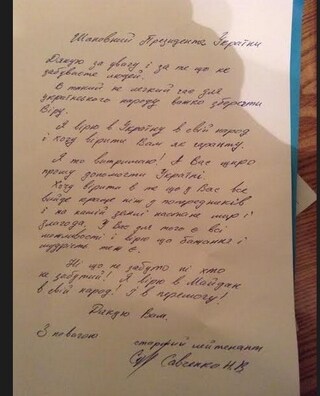 Шановний Президенте України
Дякую за увагу і за те що не
забуваєте людей.
В такий не легкий час для
українського народу важко зберегти
Віру.
Я вірю в Україну в свій народ
і хочу вірити Вам як гаранту.
Я то витримаю! А Вас щиро
прошу допомогти Україні
Хочу вірити в те що у Вас все
вийде краще ніж у попередників
і на нашій землі настане мир і
злагода. У Вас для того є всі
можливості і вірю що бажання і
мудрість теж є.
Ні що не забуто ні хто
не забутий! Я вірю в Майдан
в свій народ! І в перемогу!
Дякую Вам.
З повагою
старший лейтенант
Савченко Н.В.